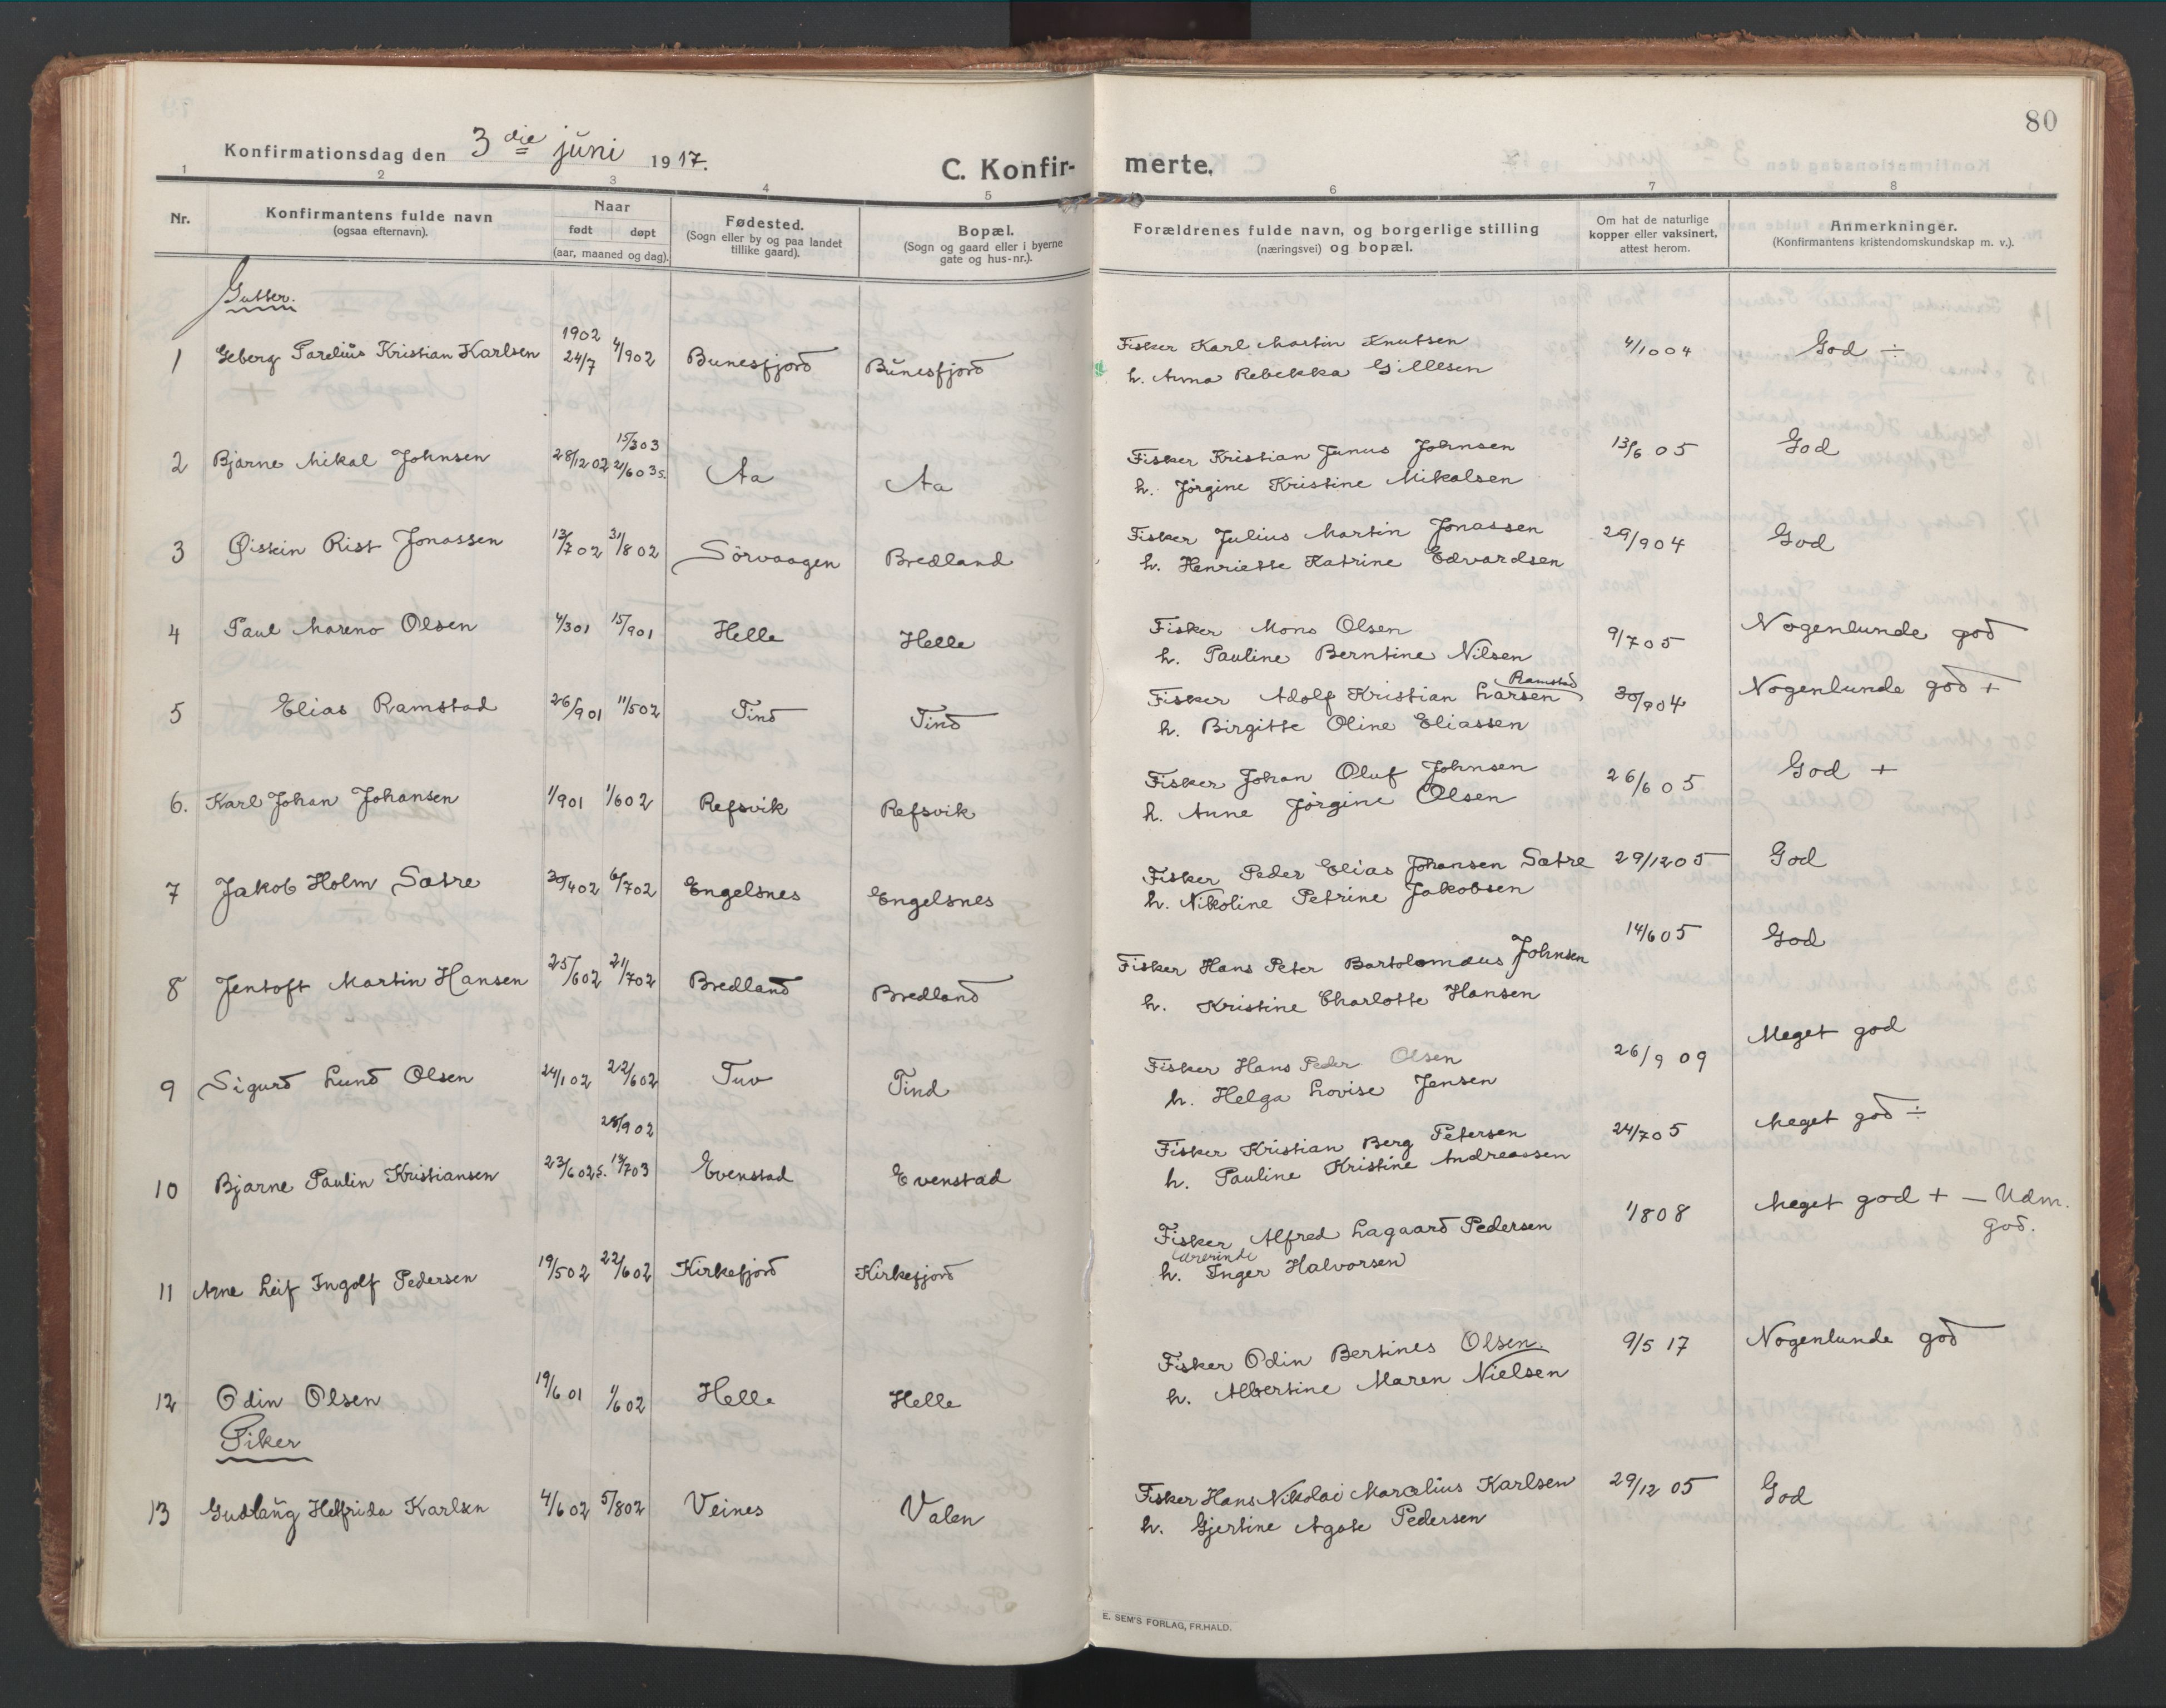 80
Konfirmationsdag den 3 die juni 1917.
C. Konfirmerte.
1 2 3 4 5 6 7 8
Nr.
Konfirmantens fulde navn
(ogsaa efternavn).
Naar
født døpt
(aar, maaned og dag).
Fødested.
(Sogn eller by og paa landet
tillike gaard).
Bopæl.
(Sogn og gaard eller i byerne
gate og hus-nr.).
Forældrenes fulde navn, og borgerlige stilling
(næringsvei) og bopæl.
Om hat de naturlige
kopper eller vaksinert,
attest herom.
Anmerkninger.
(Konfirmantens kristendomskundskap m. v.).
Gutter.
1 Geberg Parelius Kristian Karlsen 1902 24/7 4/902 Bunesfjord Bunesfjord Fisker Karl Martin Knutsen 4/1004 God ÷
h. Anna Rebekka Gillesen
2 Bjarne Mikal Johnsen 28/1202 15/303 21/603 s. Aa Aa Fisker Kristian Junus Johnsen 13/6 05 God
h. Jörgine Kristine Mikalsen
3 Øistein Rist Jonassen 13/702 31/802 Sörvaagen Bredland Fisker Julius Martin Jonassen 29/904 God
h. Henriette Katrine Edvardsen
4 Paul Mareno Olsen 4/301 15/901 Helle Helle Fisker Mons Olsen 9/705 Nogenlunde god
h. Pauline Berntine Nilsen
5 Elias Ramstad 26/901 11/502 Tind Tind Fisker Adolf Kristian Larsen Ramstad 30/904 Nogenlunde god +
h. Birgitte Oline Eliassen
6. Karl Johan Johansen 1/901 1/602 Refsvik Refsvik Fisker Johan Oluf Johnsen 26/605 God +
h. Anne Jörgine Olsen
7 Jakob Holm Sætre 30/402 6/702 Engelsnes Engelsnes Fisker Peder Elias Johansen Sætre 29/1205 God
h. Nikoline Petrine Jakobsen
8 Jentoft Martin Hansen 25/602 21/702 Bredland Bredland Fisker Hans Peter Bartolomæus Johnsen 14/605 God
h. Kristine Charlotte Hansen
9 Sigurd Lund Olsen 24/102 22/602 Tuv Tind Fisker Hans Peder Olsen 26/9 09 Meget god
h. Helga Lovise Jensen
10 Bjarne Paulin Kristiansen 23/602 28/902 s. 13/703 Evenstad Evenstad Fisker Kristian Berg Petersen 24/705 Meget god ÷
h. Pauline Kristine Andreassen
11 Arne Leif Ingolf Pedersen 19/502 22/602 Kirkefjord Kirkefjord Fisker Alfred Lagaard Pedersen 1/808 Meget god + — Udm. god.
Lærerinde
h. Inger Halvorsen
12 Odin Olsen 19/601 1/602 Helle Helle Fisker Odin Bertines Olsen 9/5 17 Nogenlunde god
h. Albertine Maren Nielsen
Piker
13 Gudlaŭg Helfrida Karlsen 4/602 5/802 Veines Valen Fisker Hans Nikolai Marelius Karlsen 29/12 05 God
h. Gjertine Agate Pedersen
E. SEM'S FORLAG, FR.HALD.